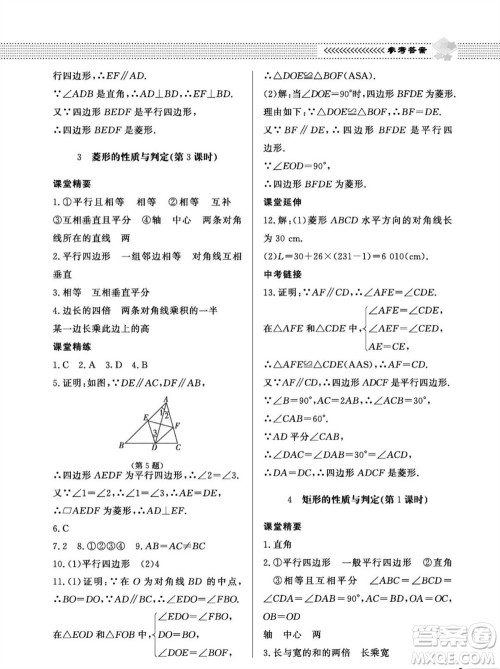 参考答案
行四边形,∴DE∥AD.
∵∠ADB=90°,∴∠EOD=90°.
又∵四边形BEDF是平行四边形,
∴四边形BEDF是菱形.
3 菱形的性质与判定(第3课时)
课堂精要
1.①平行且相等 相等 相等 互补
③相等且互相平分 ④轴 中心 两条对角线所在的直线 两
2.平行四边形 一组邻边相等 对角线互相垂直
3.相等 垂直 相等
4.边长的四倍 两条对角线乘积的一半
某一边长乘此边上的高
课堂精练
1.C 2.A 3.D 4.B
5.证明:如图,∵DE∥AC,DF∥AB,
A
1 2
E
F
3
B D C
(第5题)
∴四边形AEDF为平行四边形,∠2=∠3.
又∵∠1=∠2,∴∠1=∠3,∴AE=DE,
∴□AEDF为菱形.
6.C
7.2 8.①②③④ 9.②③
10.(1)平行四边形 (2)互相垂直
11.(1)证明:∵O为对角线BD的中点,
∴BO=DO,∵BD=BD,AB=CD,
∴在△EOD和△FOB中,
∠EDO=∠FBO,
OD=OB,
∠EOD=∠FOB,
∴△DOE≌△BOF(ASA).
(2)解:当∠DOE=90°时,四边形BFDE为菱形.
理由:∵△DOE≌△BOF,∴OE=OF.
又∵OB=OD,∴四边形EBFD是平行四边形.
∵∠EOD=90°,
∴四边形BFDE为菱形.
课堂延伸
12.解:(1)菱形ABCD水平方向的对角线长为30 cm.
(2)L=30+26×(231-1)=6 010(cm).
中考链接
13.证明:∵AF∥CD,∴∠AFE=∠CDE,
在△AFE和△CDE中,
∠AFE=∠CDE,
∠AEF=∠CED,
AE=CE,
∴△AEF≌△CED(AAS),∴AF=CD,
∵AF∥CD,∴四边形ADCF是平行四边形.
∵∠B=90°,∠ACB=30°,∴∠CAB=60°.
∵AD平分∠CAB,
∴∠DAC=∠DAB=30°=∠ACD,
∴DA=DC,∴四边形ADCF是菱形.
4 矩形的性质与判定(第1课时)
课堂精要
1.直角
2.①平行四边形 平行且相等 相等
②直角 ③相等且互相平分 OA=OC=OB=OD
轴 中心 两
3.长与宽的和的两倍 长乘宽